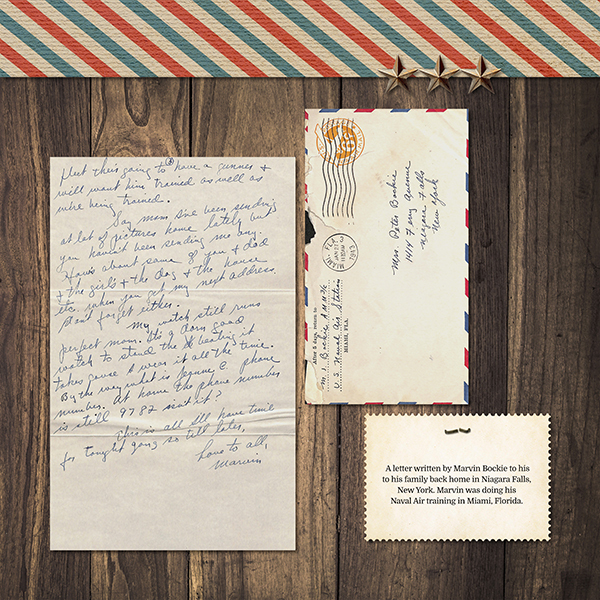 that he's going to have a gunner &
will want him trained as well as
we're being trained.
Say mom, I've been sending
at lot of pictures home lately but
you haven't been sending me any.
How's about some of you & dad
& the girls & the dog & the house
etc. when you get my next address.
Don't forget either.
My watch still runs
perfect mom. It's a darn good
watch to stand the beating it
takes cause I wear it all the time.
By the way what is Jeanne C. phone
number. At home the phone number
is still 9782 isn't it?
This is all I'll have time
for tonight gang so till later,
Love to all,
Marvin
Mrs. Peter Bockie
1414 Ferry Avenue
Niagara Falls
New York
MIAMI, FLA.
1943
After 5 days, return to
M. J. Bockie A.M.M. 3/c
U.S. Naval Air Station
MIAMI, FLA.
A letter written by Marvin Bockie to his
to his family back home in Niagara Falls,
New York. Marvin was doing his
Naval Air training in Miami, Florida.